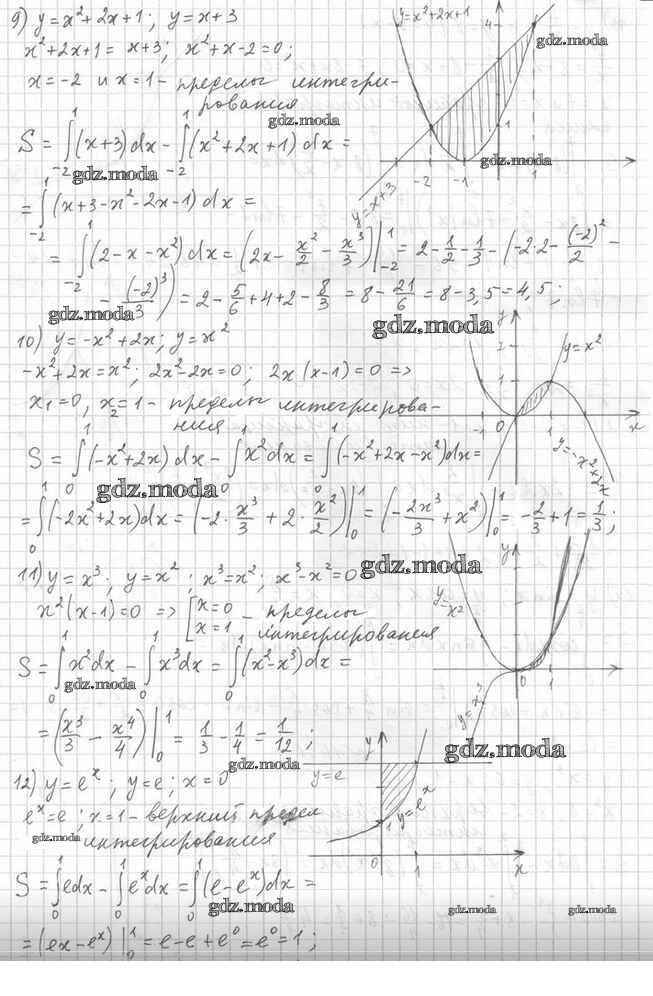 9) y=x²+2x+1; y=x+3
x²+2x+1= x+3; x²+x-2=0;
x=-2 и x=1- пределы интегри-
рования
S = ∫₋₂¹(x+3)dx - ∫₋₂¹(x²+2x+1)dx =
= ∫₋₂¹(x+3-x²-2x-1)dx =
= ∫₋₂¹(2-x-x²)dx = (2x - x²/2 - x³/3)|₋₂¹ = 2 - 1/2 - 1/3 - (-2·2 - (-2)²/2 -
- (-2)³/3) = 2 - 5/6 + 4 + 2 - 8/3 = 8 - 21/6 = 8-3,5 = 4,5;
y=x²+2x+1
4
1
-2 -1 1
y=x+3
gdz.moda
gdz.moda
gdz.moda
gdz.moda
gdz.moda
gdz.moda
10) y=-x²+2x; y=x²
-x²+2x=x²; 2x²-2x=0; 2x(x-1)=0 =>
x₁=0, x₂=1- пределы интегрирова-
ния
S = ∫₀¹(-x²+2x)dx - ∫₀¹x²dx = ∫₀¹(-x²+2x-x²)dx=
= ∫₀¹(-2x²+2x)dx = (-2·x³/3 + 2·x²/2)|₀¹ = (-2x³/3 + x²)|₀¹ = -2/3 + 1 = 1/3;
y
y=x²
2
1
-1 0 1 x
y=-x²+2x
gdz.moda
gdz.moda
11) y=x³; y=x²; x³=x²; x³-x²=0
x²(x-1)=0 => [x=0
x=1 - пределы
интегрирования
S = ∫₀¹x²dx - ∫₀¹x³dx = ∫₀¹(x²-x³)dx =
= (x³/3 - x⁴/4)|₀¹ = 1/3 - 1/4 = 1/12;
y
y=x²
0 1
y=x³
gdz.moda
gdz.moda
gdz.moda
12) y=eˣ; y=e; x=0
eˣ=e; x=1- верхний предел
интегрирования
S = ∫₀¹edx - ∫₀¹eˣdx = ∫₀¹(e-eˣ)dx =
= (ex-eˣ)|₀¹ = e-e+e⁰=e⁰=1;
y
y=e
y=eˣ
1
0 1 x
gdz.moda
gdz.moda
gdz.moda
gdz.moda